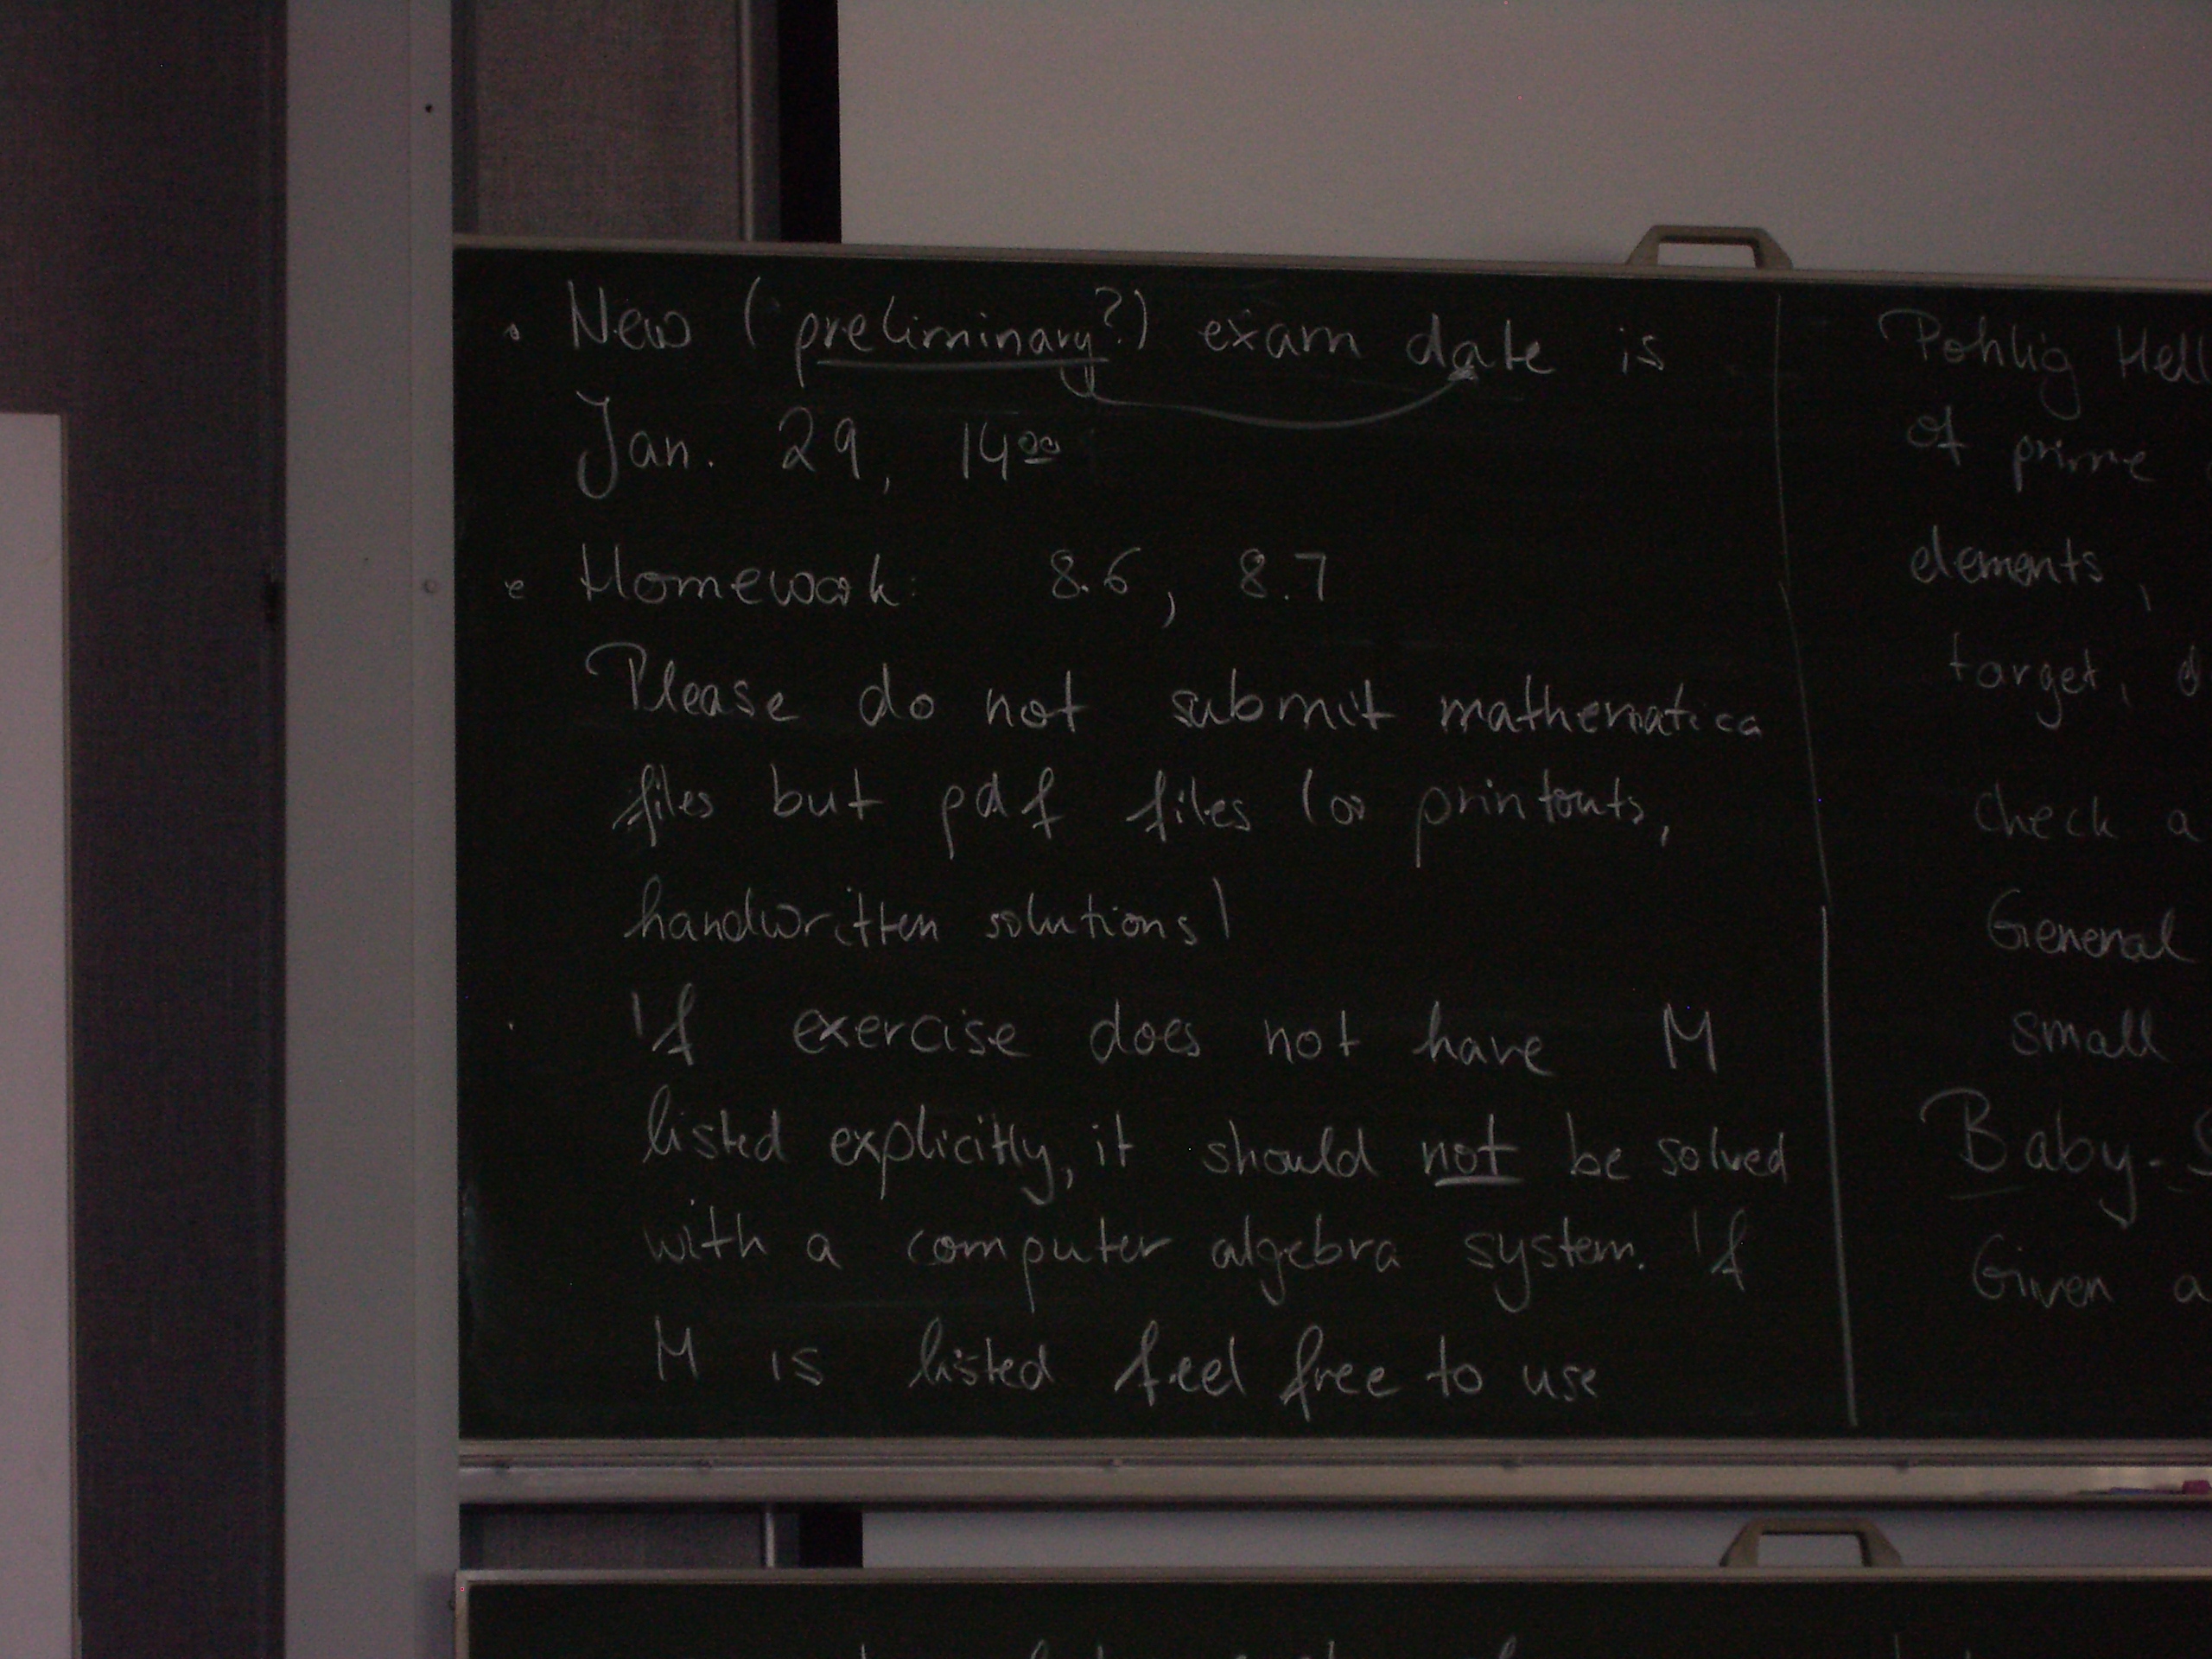 • New (preliminary?) exam date is
Jan. 29, 14⁰⁰
• Homework: 8.6, 8.7
Please do not submit mathematica
files but pdf files (or printouts,
handwritten solutions)
• If exercise does not have M
listed explicitly, it should not be solved
with a computer algebra system. If
M is listed feel free to use
Pohlig Hell
of prime
elements,
target,
check a
General
small
Baby-S
Given a